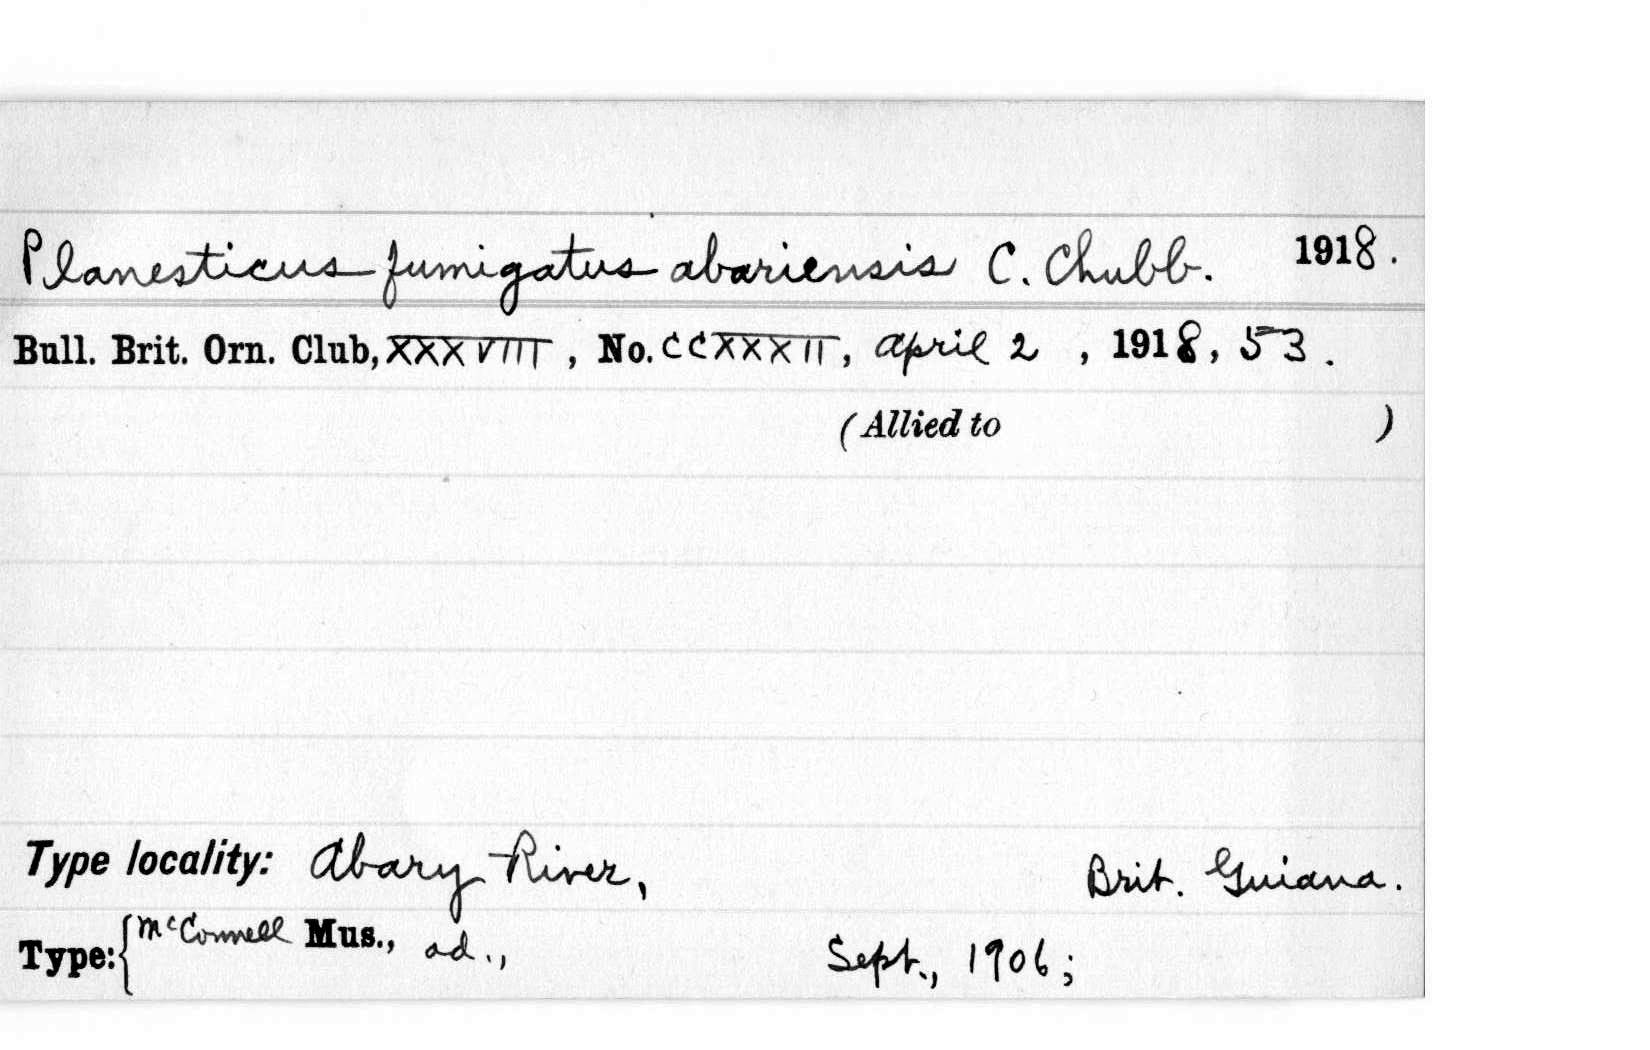 Planesticus fumigatus abariensis C. Chubb. 1918.
Bull. Brit. Orn. Club, XXXVIII, No. CCXXXII, April 2, 1918, 53.
(Allied to )
Type locality: Abary River, Brit. Guiana.
Type: { McConnell Mus., ad., Sept., 1906;